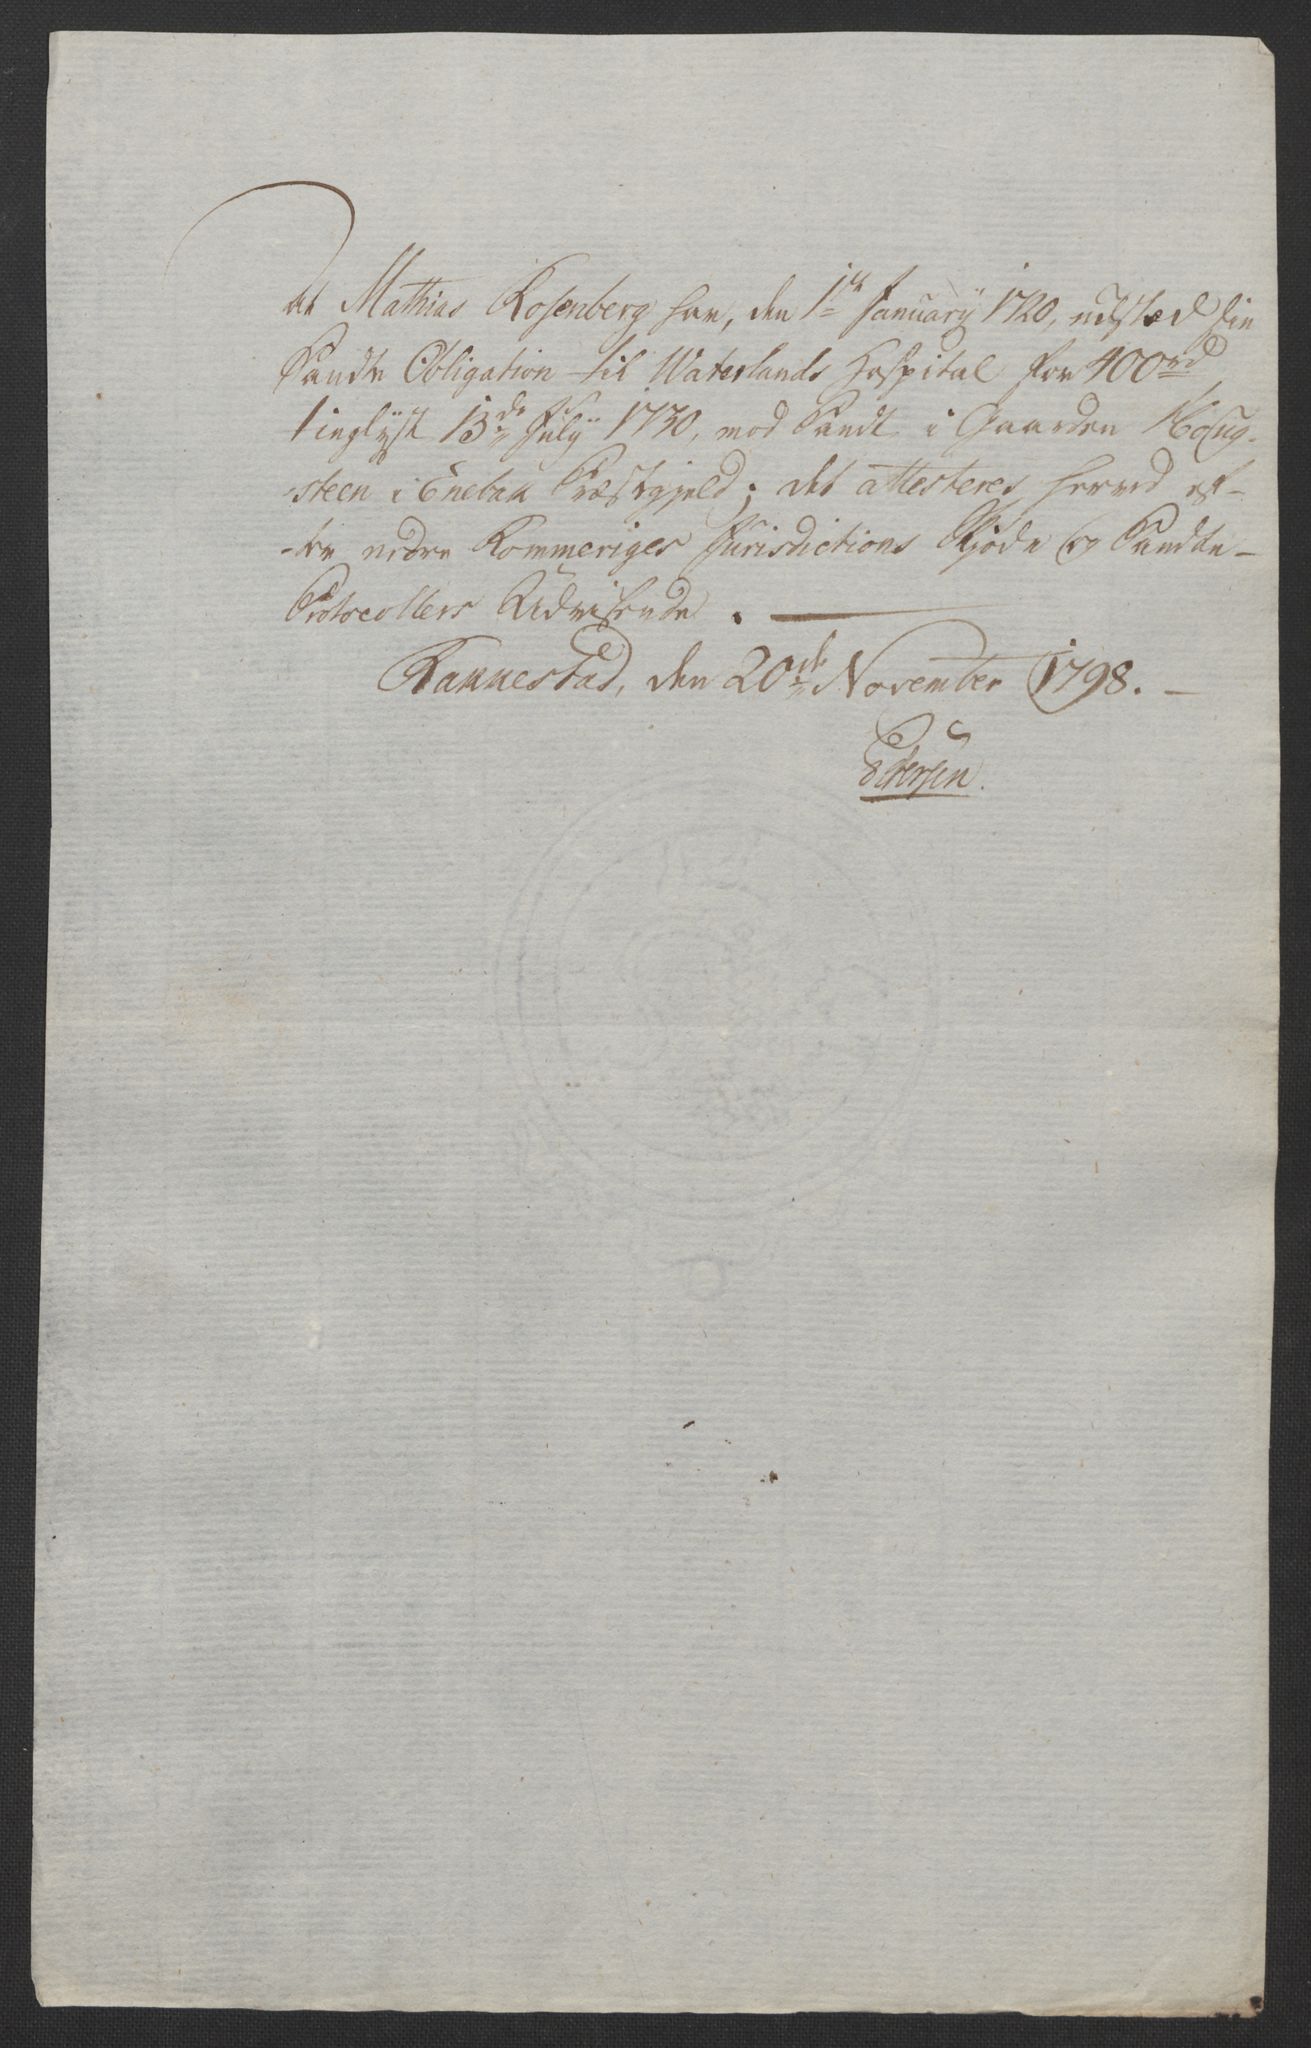 At Mathias Rosenberg har, den 1ste January 1720, udstæd sin
Pandte Obligation til Waterlands Hospital for 400rd,
tinglyst 13de July 1730, mod Pandt i Gaarden
-steen i Enebak Præstegjeld; det attesteres herved ef-
-ter nedre Rommeriges Jurisdictions Skjøde og Pandte-
Protocollers Udvisende.
den 20de November 1798.